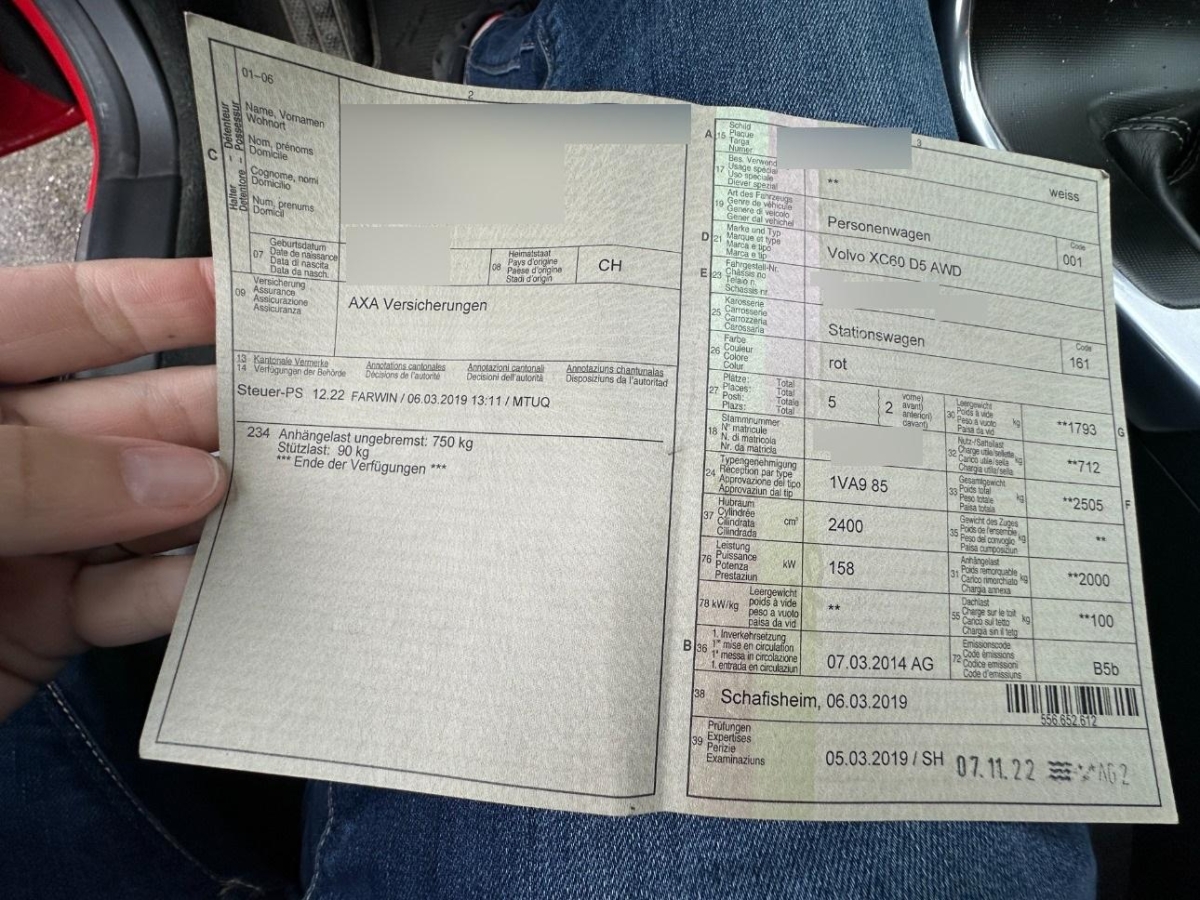 01-06
2
C
Halter – Détenteur
Detentore – Possessur
Name, Vornamen
Wohnort
Nom, prénoms
Domicile
Cognome, nomi
Domicilio
Num, prenums
Domicil
07
Geburtsdatum
Date de naissance
Data di nascita
Data da nasch.
08
Heimatstaat
Pays d'origine
Paese d'origine
Stadi d'origin
CH
09
Versicherung
Assurance
Assicurazione
Assicuranza
AXA Versicherungen
13 Kantonale Vermerke Annotations cantonales Annotazioni cantonali Annotaziuns chantunalas
14 Verfügungen der Behörde Décisions de l'autorité Decisioni dell'autorità Disposiziuns da l'autoritad
Steuer-PS 12.22 FARWIN / 06.03.2019 13:11 / MTUQ
234 Anhängelast ungebremst: 750 kg
Stützlast: 90 kg
*** Ende der Verfügungen ***
3
A
15
Schild
Plaque
Targa
Numer
weiss
17
Bes. Verwend
Usage spécial
Uso speciale
Diever spezial
**
19
Art des Fahrzeugs
Genre de véhicule
Genere di veicolo
Gener dal vehichel
Personenwagen
Code
001
D
21
Marke und Typ
Marque et type
Marca e tipo
Marca e tip
Volvo XC60 D5 AWD
E
23
Fahrgestell-Nr.
Châssis no
Telaio n.
Schassis nr.
25
Karosserie
Carrosserie
Carrozzeria
Carossaria
Stationswagen
Code
161
26
Farbe
Couleur
Colore
Colur
rot
27
Plätze: Total
Places: Total
Posti: Totale
Plazs: Total
5
2
vorne)
avant)
anteriori)
davant)
30
Leergewicht
Poids à vide
Peso a vuoto
Paisa da vid
kg
**1793
G
18
Stammnummer
N° matricule
N. di matricola
Nr. da matricla
32
Nutz-/Sattellast
Charge utile/sellette
Carico utile/sella
Chargia utila/sella
kg
**712
24
Typengenehmigung
Réception par type
Approvazione del tipo
Approvaziun dal tip
1VA9 85
33
Gesamtgewicht
Poids total
Peso totale
Paisa totala
kg
**2505
F
37
Hubraum
Cylindrée
Cilindrata
Cilindrada
cm³
2400
35
Gewicht des Zuges
Poids de l'ensemble
Peso del convoglio
Paisa cumposiziun
kg
**
76
Leistung
Puissance
Potenza
Prestaziun
kW
158
31
Anhängelast
Poids remorquable
Carico rimorchiato
Chargia annexa
kg
**2000
78 kW/kg
Leergewicht
poids à vide
peso a vuoto
paisa da vid
**
55
Dachlast
Charge sur le toit
Carico sul tetto
Chargia sin il tetg
kg
**100
B
36
1. Inverkehrsetzung
1re mise en circulation
1a messa in circolazione
1. entrada en circulaziun
07.03.2014 AG
72
Emissionscode
Code émissions
Codice emissioni
Code d'emissiuns
B5b
38 Schafisheim, 06.03.2019
556.652.612
39
Prüfungen
Expertises
Perizie
Examinaziuns
05.03.2019 / SH
07.11.22
AG 2